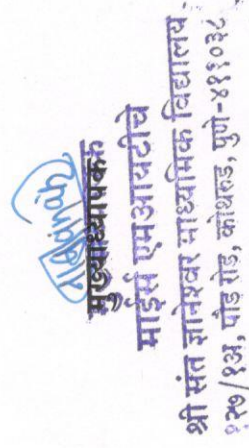 मुख्याध्यापक
माईर्स एमआयटीचे
श्री संत ज्ञानेश्वर माध्यमिक विद्यालय
पौड रोड, कोथरुड, पुणे-४११०३८